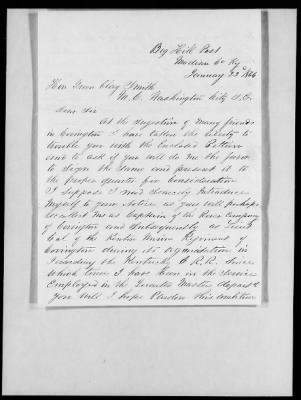 Big Hill Post
Madison Co Ky
January 23d 1866
Hon Green Clay Smith
M.C. Washington City D.C.
Dear Sir
At the Suggestion of many friends
in Covington I have taken the liberty to
trouble you with the Enclosed Petition
and to ask if you will do me the favor
to Sign the Same and present it to
the proper quarter for Consideration
I Suppose I need Scarcely Introduce
Myself to your Notice as you will perhaps
recollect me as Captain of the Company
of Covington and Subsequently as Lieut
Col of the Kenton Union Regiment of
Covington during its organization in
Guarding the Kentucky C.R.R. Since
which time I have been in the Service
Employed in the Quarter Master depart
You will I hope Pardon this